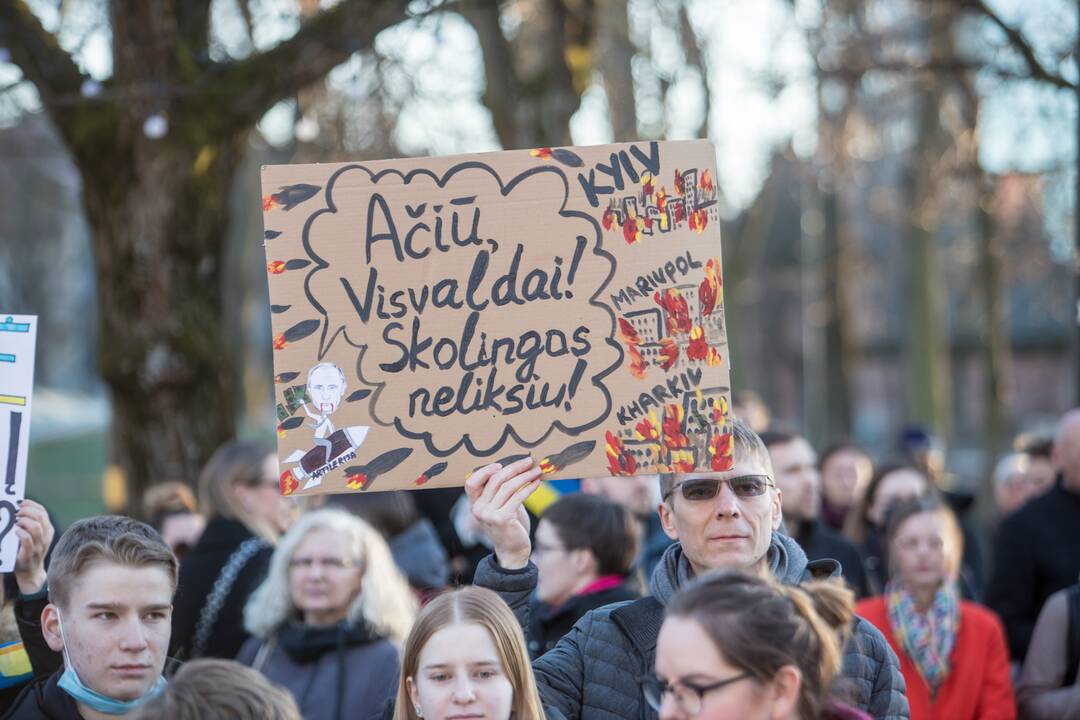 Ačiū,
Visvaldai!
Skolingas
neliksiu!
KYIV
MARIUPOL
KHARKIV
ARTILERIJA
?